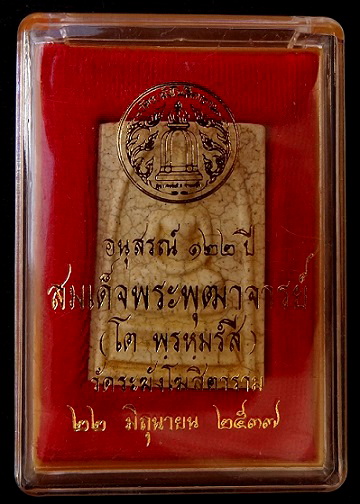 อนุสรณ์ ๑๒๒ ปี
สมเด็จพระพุฒาจารย์
(โต พฺรหฺมรํสี)
วัดระฆังโฆสิตาราม
๒๒ มิถุนายน ๒๕๓๗